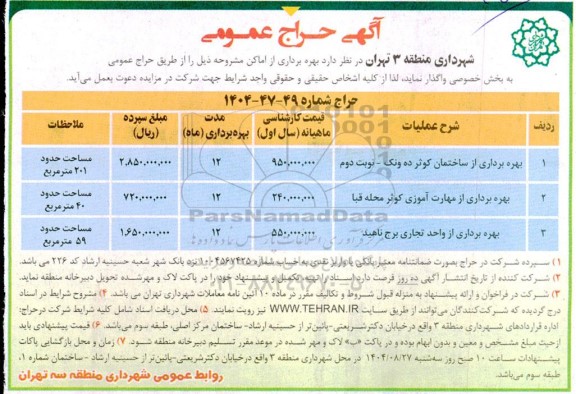 آگهی حراج عمومی
شهرداری منطقه ۳ تهران در نظر دارد بهره برداری از اماکن مشروحه ذیل را از طریق حراج عمومی
به بخش خصوصی واگذار نماید، لذا از کلیه اشخاص حقیقی و حقوقی واجد شرایط جهت شرکت در مزایده دعوت بعمل می‌آید.
حراج شماره ۴۹-۴۷-۱۴۰۴
ردیف شرح عملیات قیمت کارشناسی ماهیانه (سال اول) مدت بهره‌برداری (ماه) مبلغ سپرده (ریال) ملاحظات
۱ بهره برداری از ساختمان کوثر ده ونک - نوبت دوم ۹۵۰,۰۰۰,۰۰۰ ۱۲ ۲,۸۵۰,۰۰۰,۰۰۰ مساحت حدود ۲۰۱ مترمربع
۲ بهره برداری از مهارت آموزی کوثر محله قبا ۲۴۰,۰۰۰,۰۰۰ ۱۲ ۷۲۰,۰۰۰,۰۰۰ مساحت حدود ۴۰ مترمربع
۳ بهره برداری از واحد تجاری برج ناهید ۵۵۰,۰۰۰,۰۰۰ ۱۲ ۱,۶۵۰,۰۰۰,۰۰۰ مساحت حدود ۵۹ مترمربع
ParsNamadData
۰۲۱-۸۸۳۴۹۶۷۰-۵
۱) سپرده شرکت در حراج بصورت ضمانتنامه معتبر بانکی یا واریز نقدی به حساب شماره ۱۰۰۴۵۶۷۴۲۵ نزد بانک شهر شعبه حسینیه ارشاد کد ۲۲۶ می باشد.
۲) شرکت کننده از تاریخ انتشار آگهی ده روز فرصت دارد اسناد را اخذ و تکمیل و پیشنهاد خود را در پاکت لاک و مهرشده تحویل دبیرخانه منطقه نماید.
۳) شرکت در فراخوان و ارائه پیشنهاد به منزله قبول شروط و تکالیف مقرر در ماده ۱۰ آئین نامه معاملات شهرداری تهران می باشد. ۴) مشروح شرایط در اسناد
درج گردیده که شرکت‌کنندگان می‌توانند از طریق سایت WWW.TEHRAN.IR نیز رویت نمایند. ۵) محل دریافت اسناد شامل کلیه شرایط شرکت درحراج:
اداره قراردادهای شهرداری منطقه ۳ واقع درخیابان دکترشریعتی-پائین‌تر از حسینیه ارشاد- ساختمان مرکز اصلی، طبقه سوم می‌باشد. ۶) قیمت پیشنهادی باید
ازحیث مبلغ مشخص و معین و بدون ابهام بوده و در پاکت «ب» لاک و مهر شده در موعد مقرر تسلیم دبیرخانه منطقه شود. ۷) زمان و محل بازگشایی پاکات
پیشنهادات ساعت ۱۰ صبح روز سه‌شنبه ۱۴۰۴/۰۸/۲۷ در محل شهرداری منطقه ۳ واقع درخیابان دکترشریعتی-پائین‌تر از حسینیه ارشاد - ساختمان شماره ۱،
طبقه سوم می‌باشد.
روابط عمومی شهرداری منطقه سه تهران